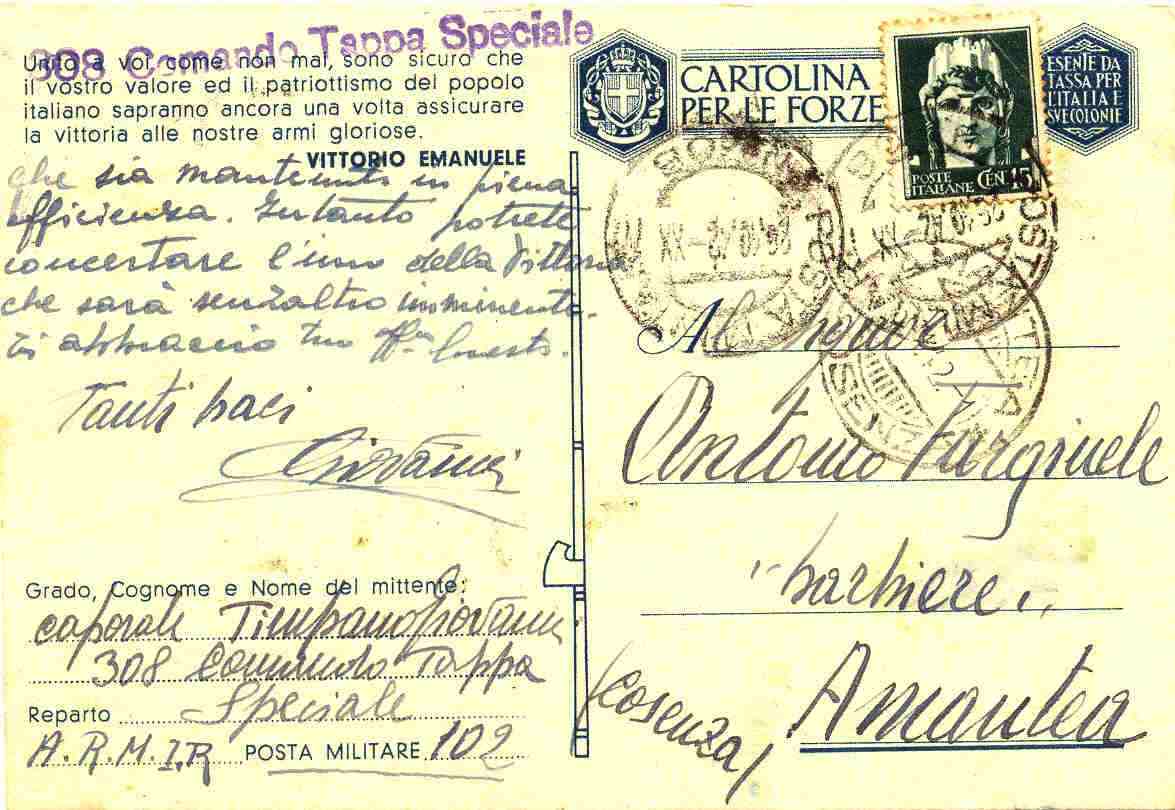 308 Comando Tappa Speciale
Unito a voi come non mai, sono sicuro che
il vostro valore ed il patriottismo del popolo
italiano sapranno ancora una volta assicurare
la vittoria alle nostre armi gloriose.
VITTORIO EMANUELE
che sia mantenuta in piena
efficienza. Intanto potrete
concertare l'inno della Vittoria
che sarà senzaltro imminente.
Ti abbraccio tuo
Tanti baci
Giovanni
Grado, Cognome e Nome del mittente:
caporale Timpano Giovanni
308 Comando Tappa
Reparto Speciale
A.R.M.I.R POSTA MILITARE 102
CARTOLINA
PER LE FORZE
ESENTE DA
TASSA PER
L'ITALIA E
SVE COLONIE
POSTE
ITALIANE CEN. 15
POSTA
Al Signore
Antonio Furgiuele
"barbiere"
Amantea
(Cosenza)